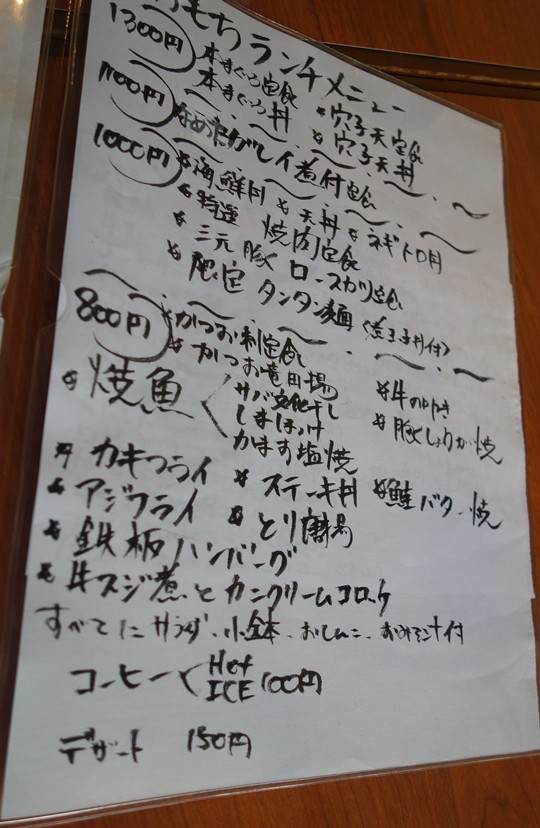 もちランチメニュー
1300円 本まぐろ定食 *穴子天定食
本まぐろ丼 *穴子天丼
1100円 なめたガレイ煮付定食
1000円 *海鮮丼 *天丼 *ネギトロ丼
*特選 焼肉定食
*三元豚 ロースカツ定食
*限定 タンタン麺
800円 *かつお刺定食
*かつお竜田揚 *牛の
*焼魚 サバ文化干し *豚しょうが焼
しまほっけ
かます塩焼
*カキフライ *ステーキ丼 *鮭バター焼
*アジフライ *とり唐揚
*鉄板ハンバーグ
*牛スジ煮とカニクリームコロッケ
すべてにサラダ、小鉢、おしんこ、おみそ汁付
コーヒー Hot
ICE 100円
デザート 150円